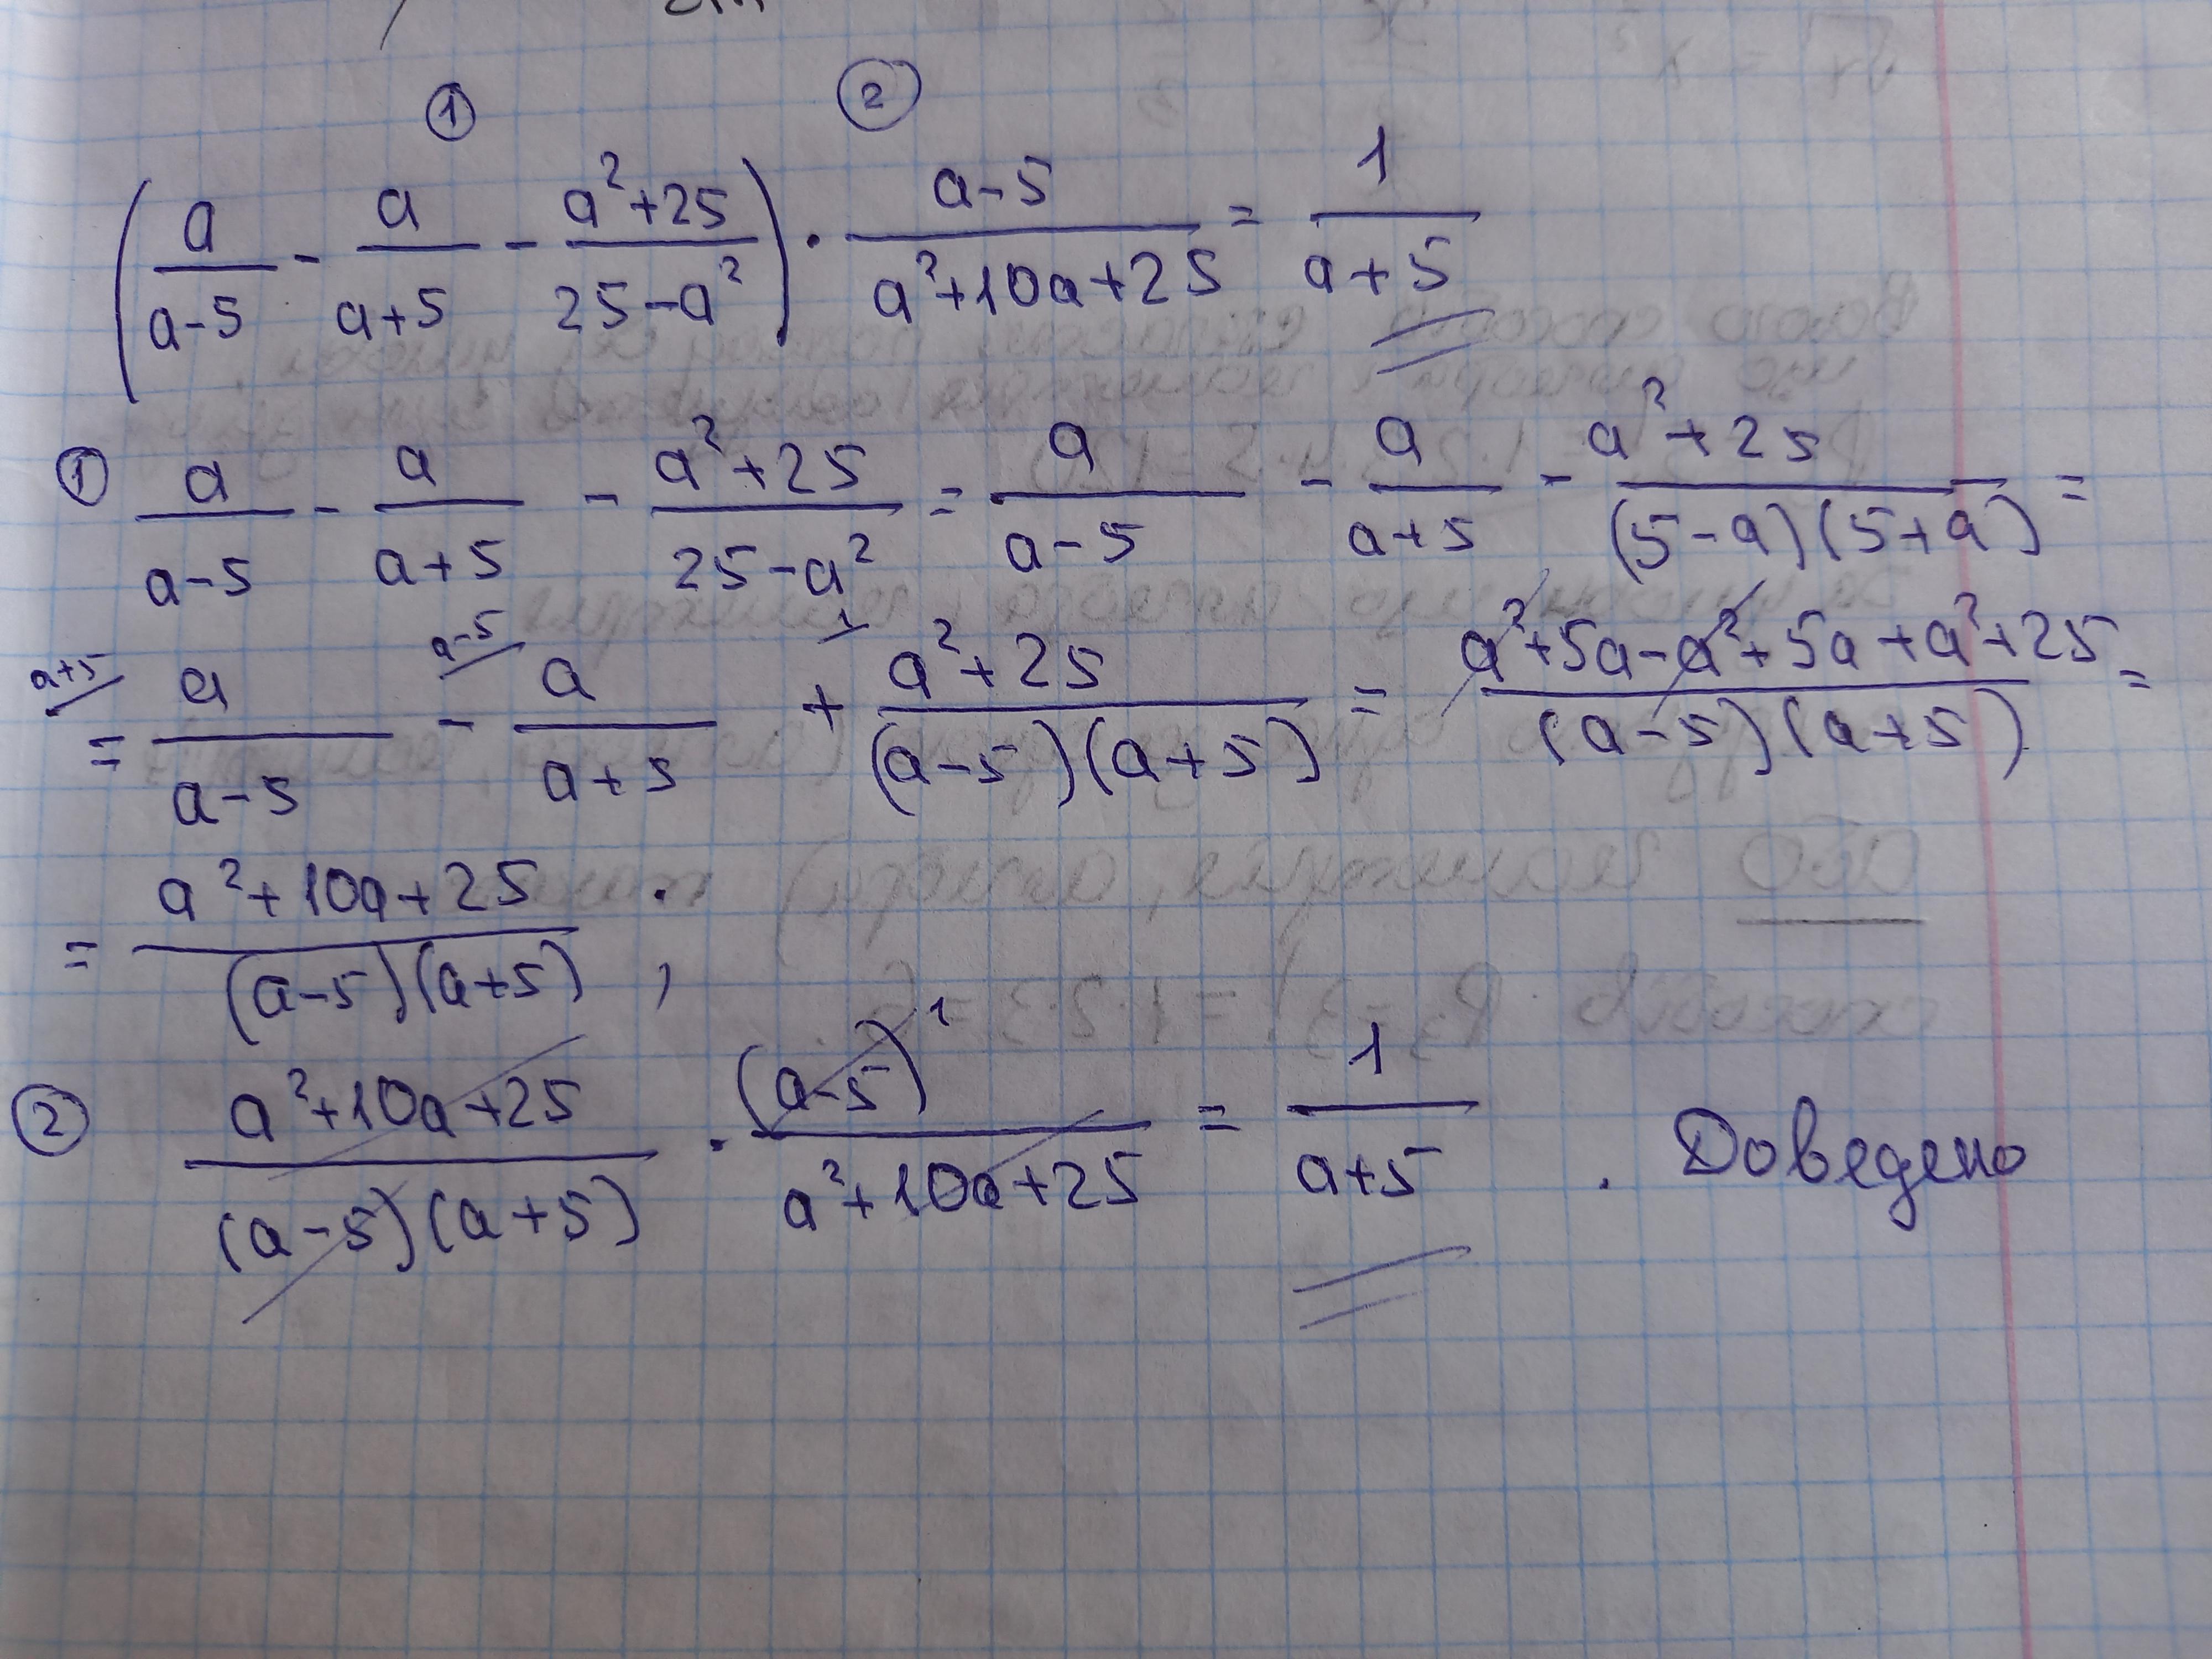 ① ②
(a/(a-5) - a/(a+5) - (a²+25)/(25-a²)) · (a-5)/(a²+10a+25) = 1/(a+5)
① a/(a-5) - a/(a+5) - (a²+25)/(25-a²) = a/(a-5) - a/(a+5) - (a²+25)/((5-a)(5+a)) =
a+5 a-5 1
= a/(a-5) - a/(a+5) + (a²+25)/((a-5)(a+5)) = (a²+5a-a²+5a+a²+25)/((a-5)(a+5)) =
= (a²+10a+25)/((a-5)(a+5)) ;
② (a²+10a+25)/((a-5)(a+5)) · (a-5) 1/(a²+10a+25) = 1/(a+5) . Доведено